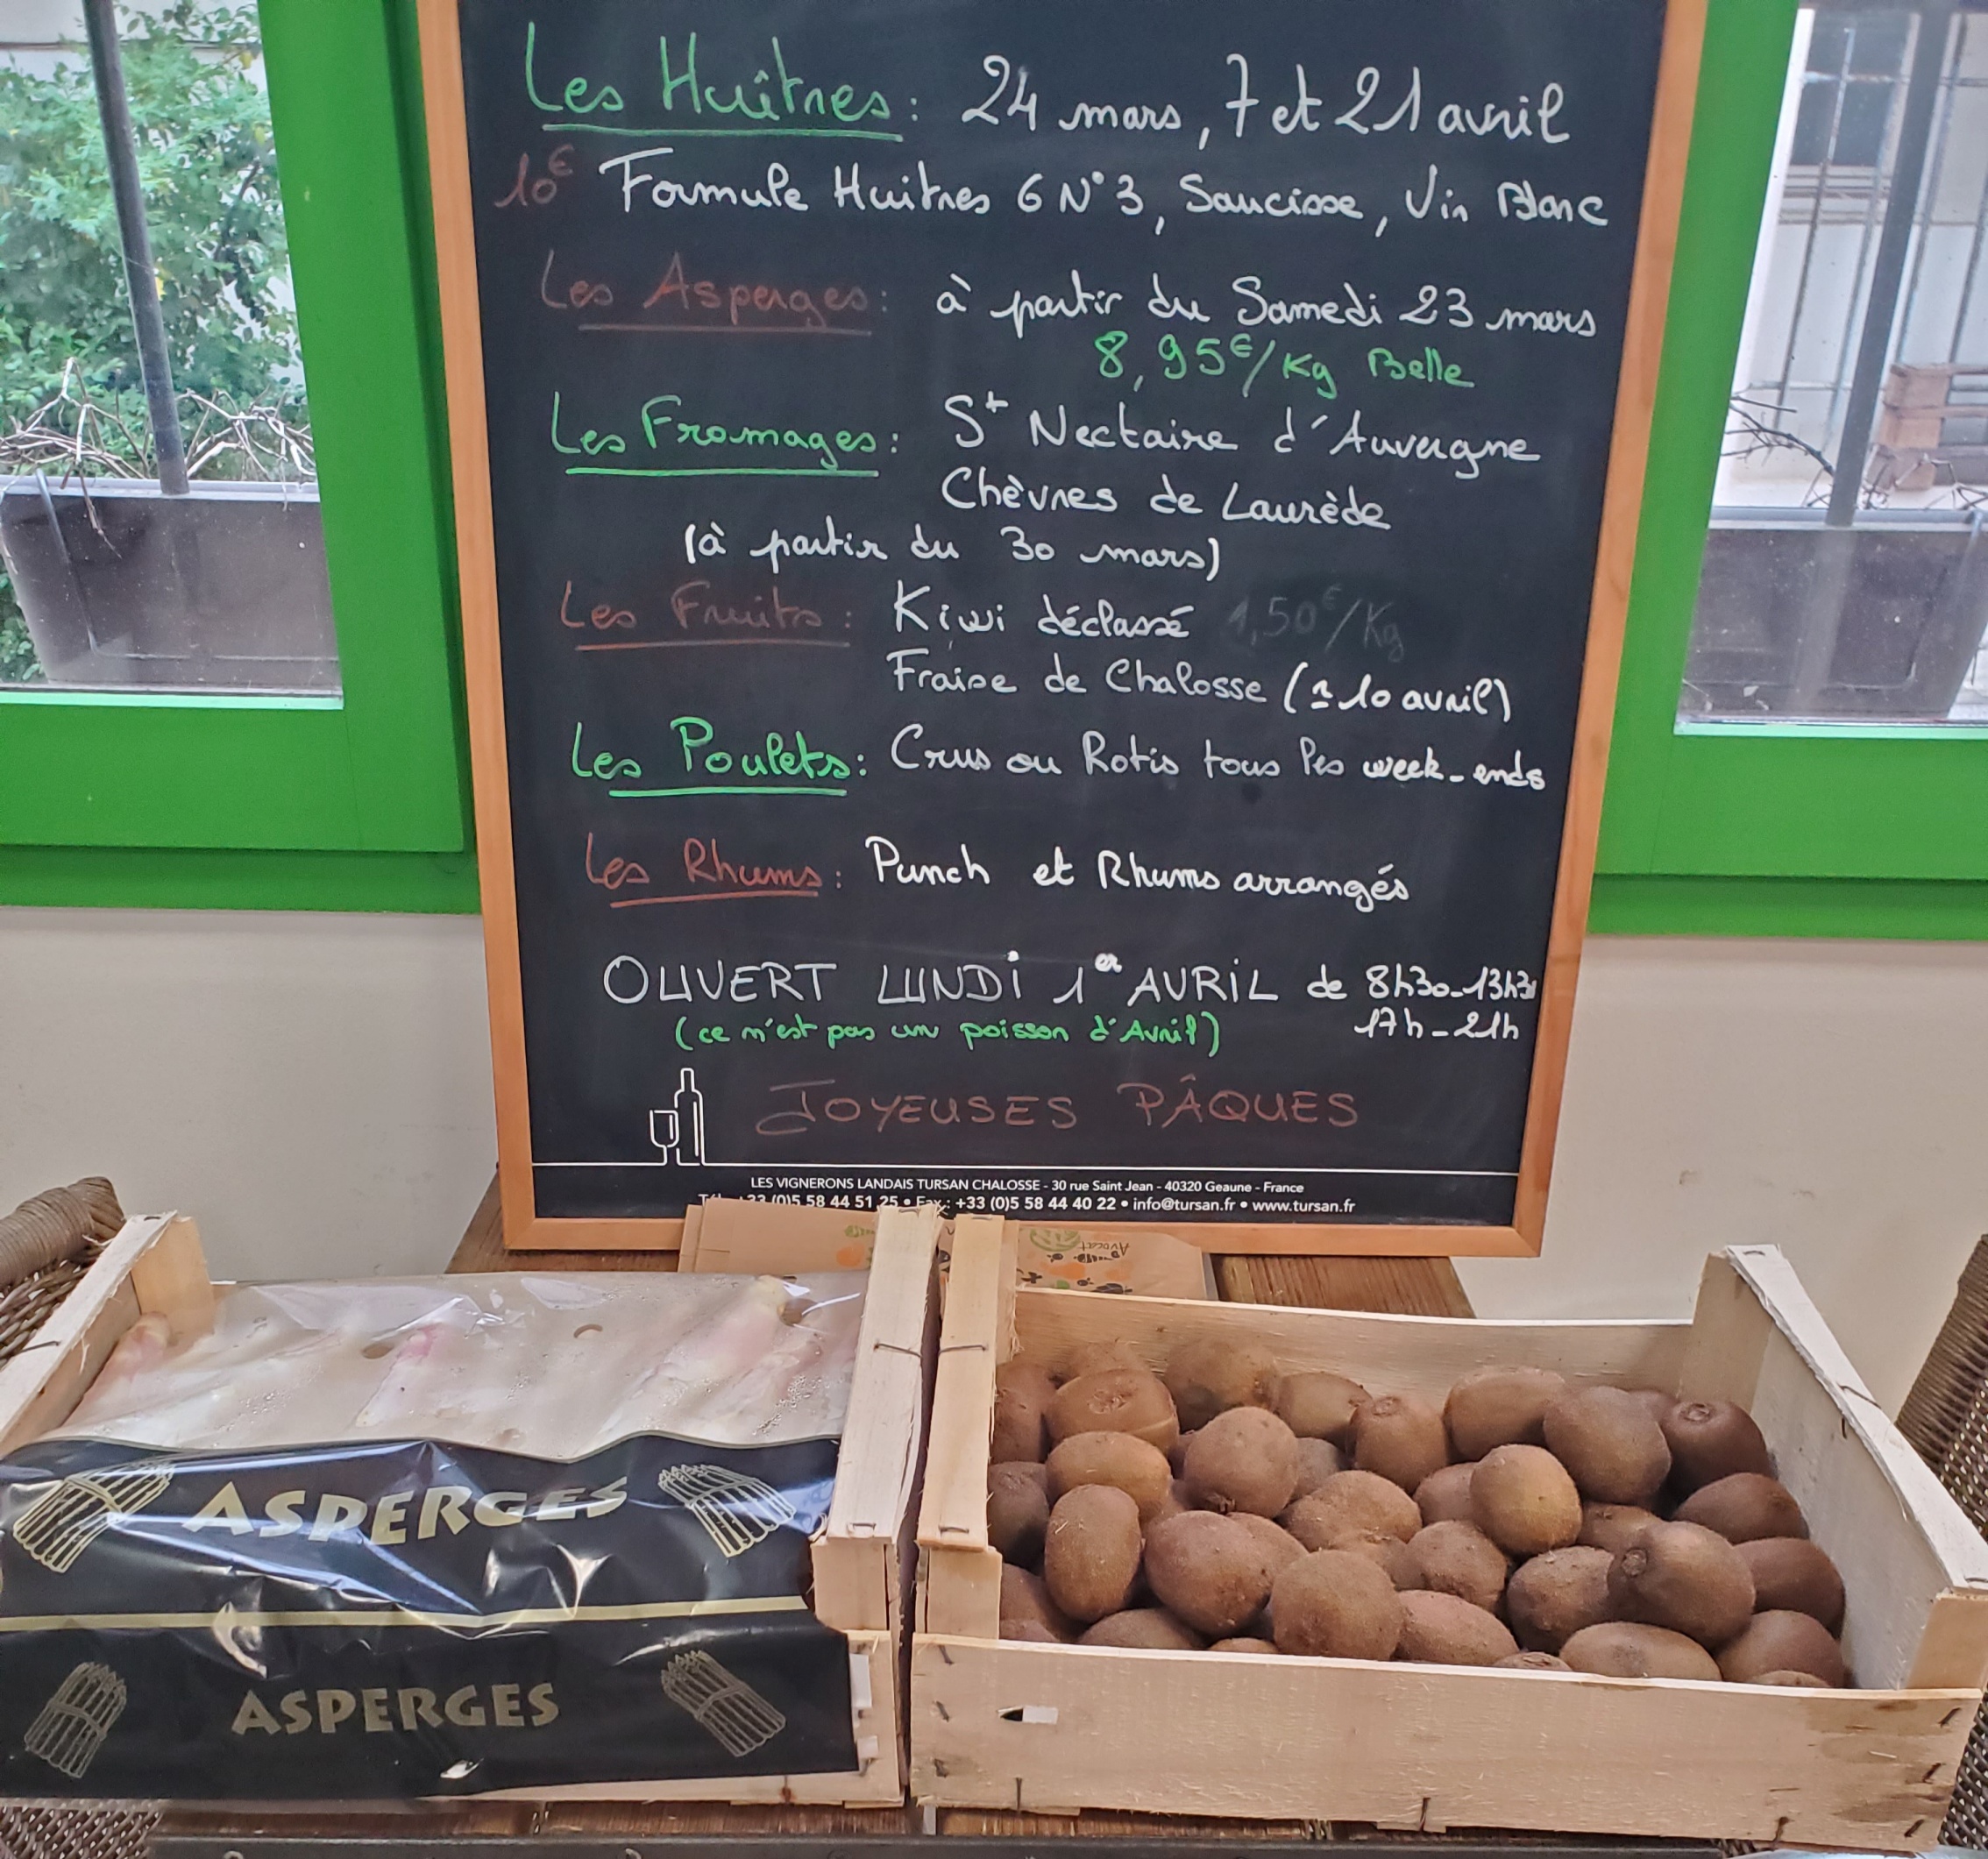 Les Huîtres : 24 mars, 7 et 21 avril
10€ Formule Huitres 6 N°3, Saucisse, Vin Blanc
Les Asperges : à partir du Samedi 23 mars
8,95€/Kg Belle
Les Fromages : St Nectaire d'Auvergne
Chèvres de Laurède
(à partir du 30 mars)
Les Fruits : Kiwi déclassé 1,50€/Kg
Fraise de Chalosse (≃ 10 avril)
Les Poulets : Crus ou Rotis tous les week-ends
Les Rhums : Punch et Rhums arrangés
OUVERT LUNDi 1er AVRiL de 8h30-13h30
(ce n'est pas un poisson d'Avril) 17h-21h
JOYEUSES PÂQUES
LES VIGNERONS LANDAIS TURSAN CHALOSSE - 30 rue Saint Jean - 40320 Geaune - France
(0)5 58 44 51 25 • Fax : +33 (0)5 58 44 40 22 • info@tursan.fr • www.tursan.fr
AVOCAT
ASPERGES
ASPERGES